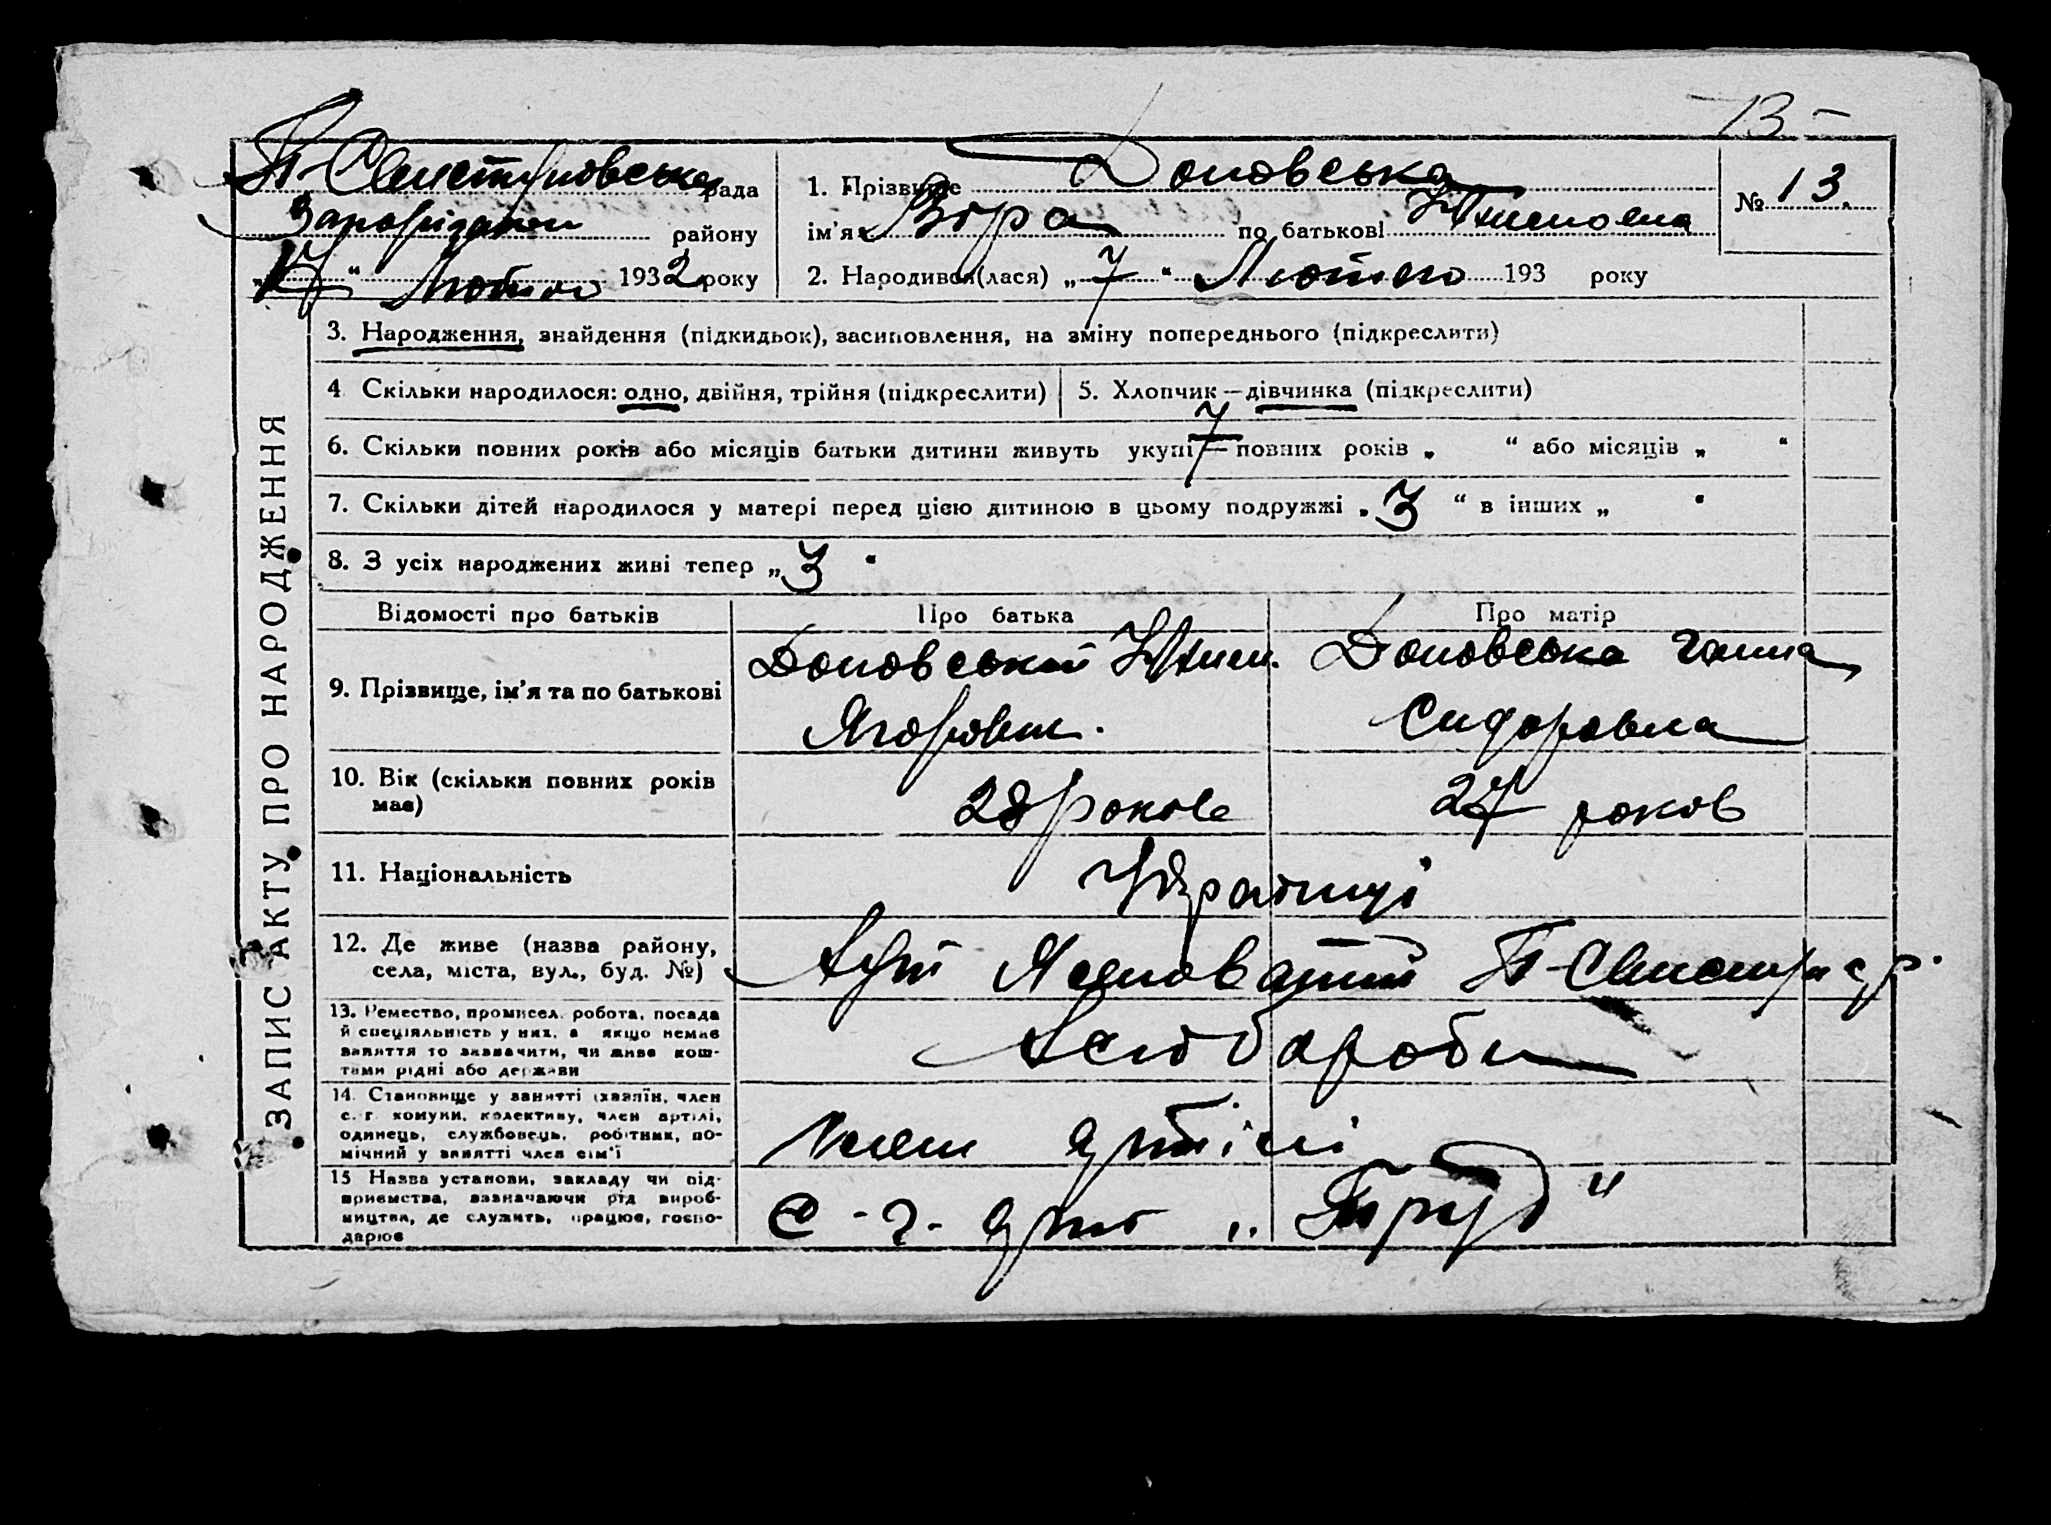 13
П-Свистуновська рада
Запорізького району
„17“ Лютого 1932 року
1. Прізвище Доновська
ім'я Віра по батькові
№ 13.
2. Народився(лася) „7“ Лютого 193 року
ЗАПИС АКТУ ПРО НАРОДЖЕННЯ
3. Народження, знайдення (підкидьок), засиновлення, на зміну попереднього (підкреслити)
4 Скільки народилося: одно, двійня, трійня (підкреслити)
5. Хлопчик — дівчинка (підкреслити)
6. Скільки повних років або місяців батьки дитини живуть укупі 7 повних років „ “ або місяців „ “
7. Скільки дітей народилося у матері перед цією дитиною в цьому подружжі „3“ в інших „ “
8. З усіх народжених живі тепер „3“
Відомості про батьків
Про батька
Про матір
9. Прізвище, ім'я та по батькові
Доновський
Ягорович.
Доновська Ганна
Сидоровна
10. Вік (скільки повних років
має)
28 років
27 років
11. Національність
Українці
12. Де живе (назва району,
села, міста, вул., буд. №)
Хут Ясиноватий П-Свистун с р.
13. Ремество, промисел, робота, посада
й спеціяльність у них, а якщо немає
заняття то зазначити, чи живе кош-
тами рідні або держави
Хліборобы
14. Становище у занятті (хазяїн, член
с. г. комуни, колективу, член артілі,
одинець, службовець, робітник, по-
мічний у занятті член сім'ї
Члени артілі
15 Назва установи, закладу чи під-
приємства, зазначаючи рід вироб-
ництва, де служить, працює, госпо-
дарює
С-г- арт „Труд“